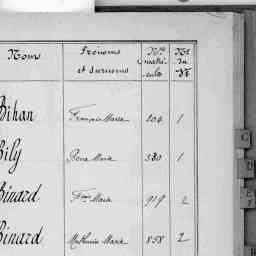 Noms Prénoms et surnoms Nos matri- cules Nos du Rre
Bihan François Marie 204 1
Bily Rene Marie 580 1
Binard Fçois Marie 919 2
Binard Mathurin Marie 858 2
C
D
E
F
H